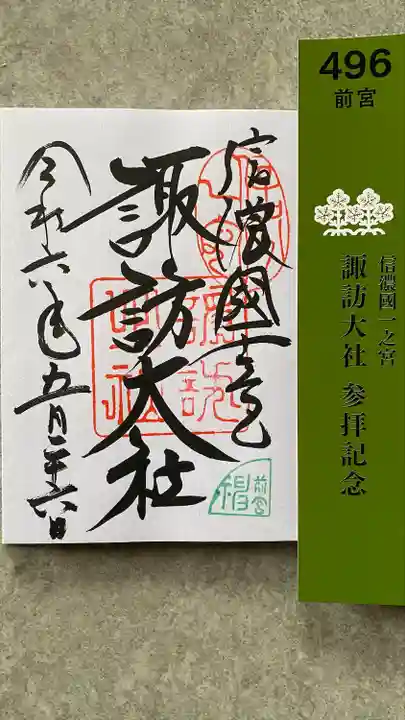 496
前宮
信濃國一之宮
諏訪大社 参拝記念
信濃國一之宮
諏訪大社
令和六年五月二十六日
前宮